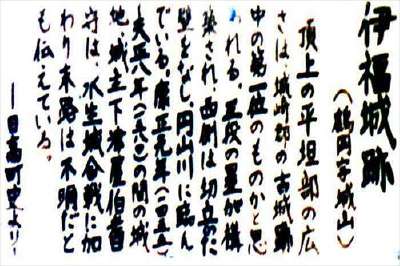 伊福城跡
(鶴岡字城山)
頂上の平坦部の広
さは、城崎郡の古城跡
中の第一位のものかと思
われる。三段の塁が構
築され、西側は切立った
壁をなし、円山川に臨ん
でいる。康正元年(一四五五)
天正八年(一五八〇)の間の城
地、城主下津屋伯耆
守は、水生城合戦に加
わり末路は不明だと
も伝えている。
―日高町史より―